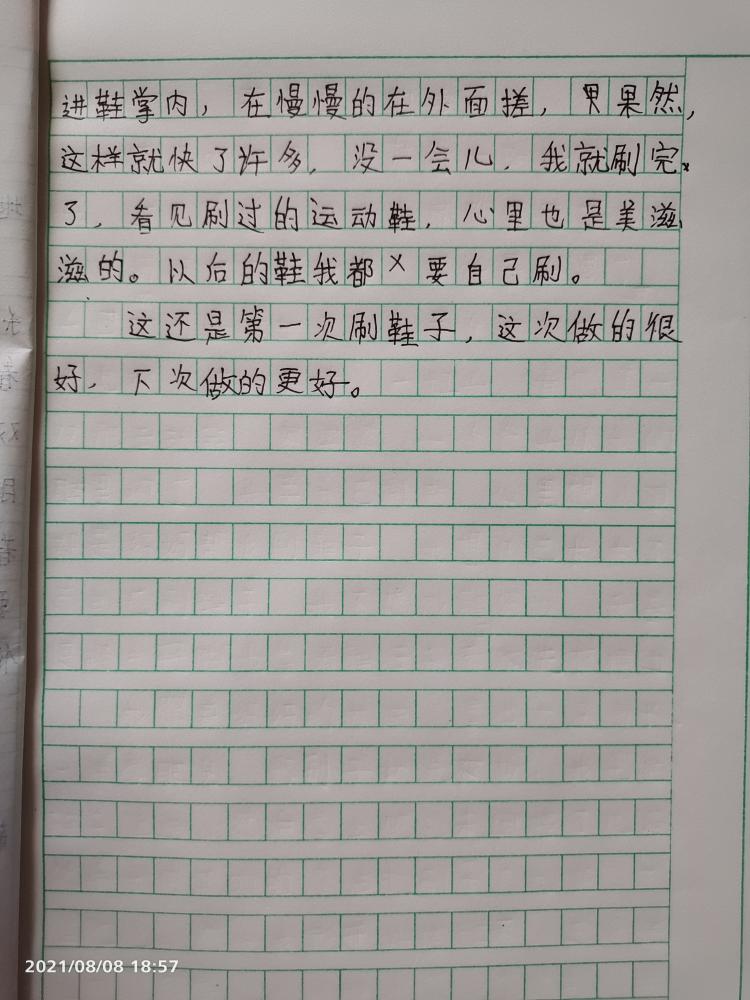 进鞋掌内，在慢慢的在外面搓，果果然，
这样就快了许多，没一会儿，我就刷完
了，看见刷过的运动鞋，心里也是美滋
滋的。以后的鞋我都×要自己刷。
这还是第一次刷鞋子，这次做的很
好，下次做的更好。
2021/08/08 18:57